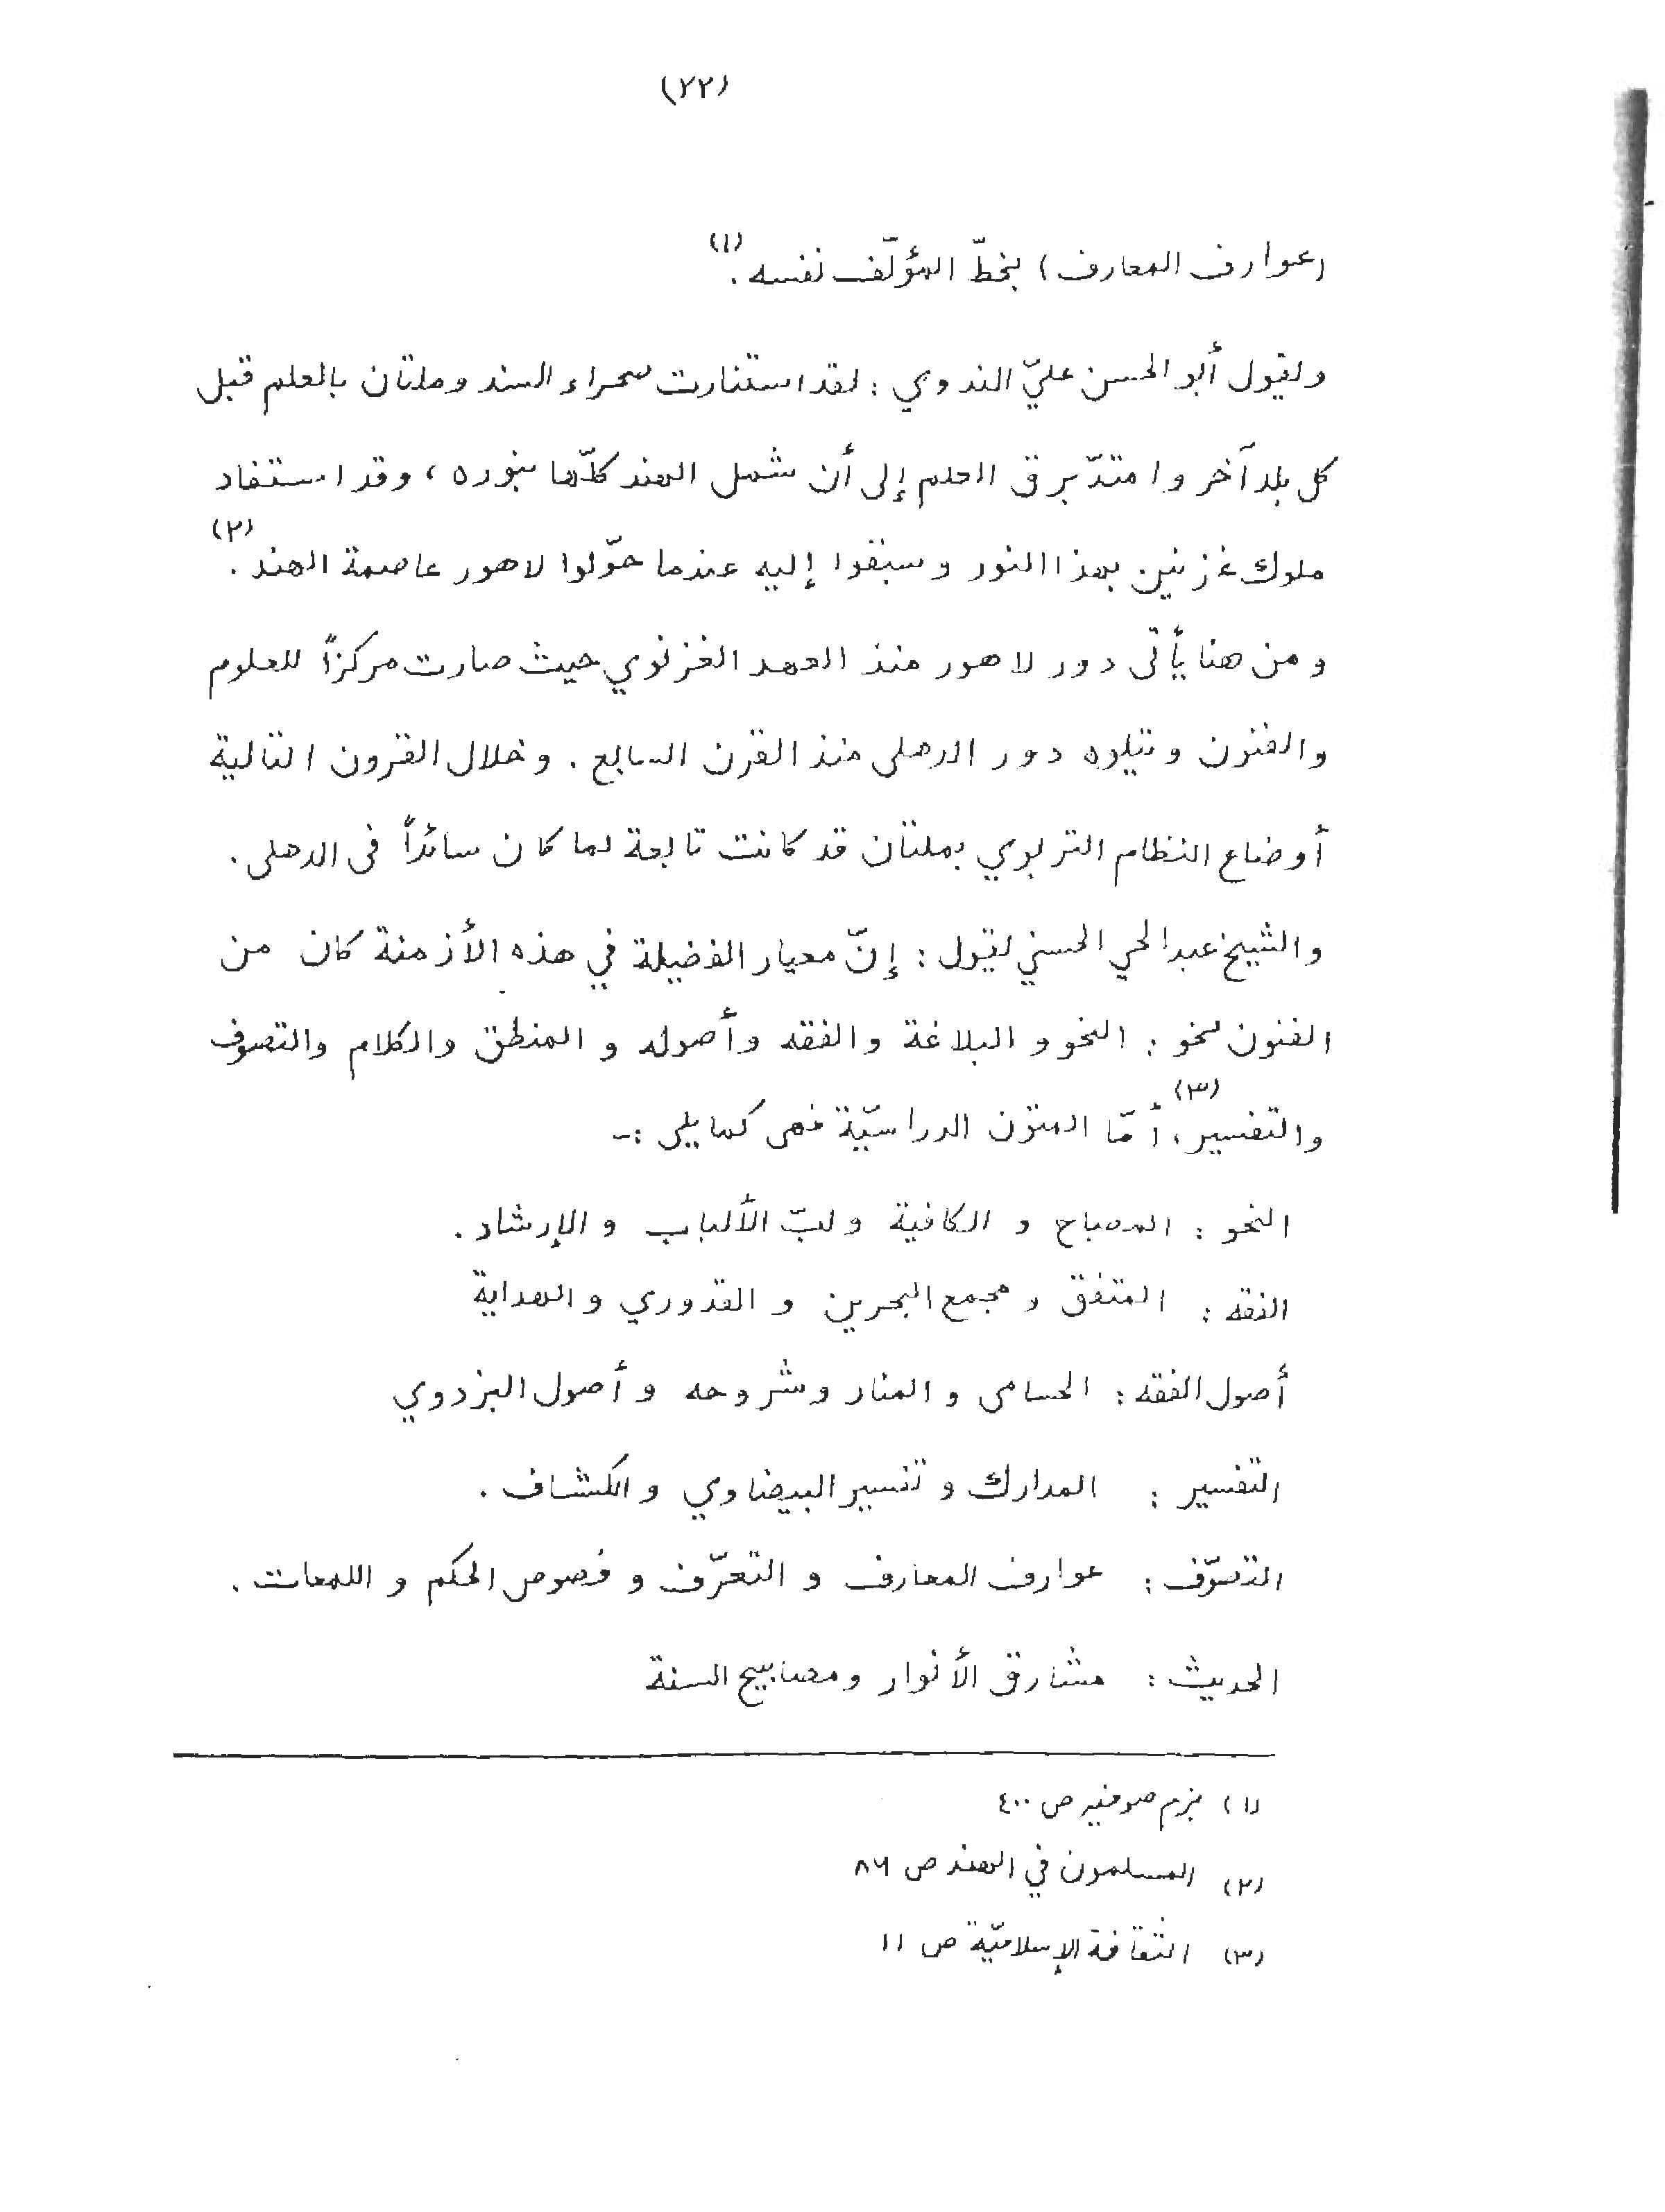 (٢٢)
(عوارف المعارف) بخطّ المؤلّف نفسه.(١)
ويقول أبو الحسن عليّ الندوي : لقد استنارت صحراء السند وملتان بالعلم قبل
كل بلد آخر وامتدّ برق العلم إلى أن شمل الهند كلّها بنوره ، وقد استفاد
ملوك غزنين بهذا النور وسبقوا إليه عندما حوّلوا لاهور عاصمة الهند.(٢)
ومن هنا يأتى دور لاهور منذ العهد الغزنوي حيث صارت مركزاً للعلوم
والفنون ويتلوه دور الدهلى منذ القرن السابع . وخلال القرون التالية
أوضاع النظام التربوي بملتان قد كانت تابعة لما كان سائداً فى الدهلى .
والشيخ عبد الحي الحسني يقول : إنّ معيار الفضيلة في هذه الأزمنة كان من
الفنون نحو : النحو و البلاغة والفقه وأصوله و المنطق والكلام والتصوف
والتفسير،(٣) أمّا المتون الدراسيّة فهى كما يلى :-
النحو : المصباح و الكافية ولبّ الألباب و الإرشاد .
الفقه : المتفق و مجمع البحرين و القدوري و الهداية
أصول الفقه : الحسامى و المنار وشروحه و أصول البزدوي
التفسير : المدارك و تفسير البيضاوي و الكشاف .
التصوّف : عوارف المعارف و التعرّف و فصوص الحكم و اللمعات .
الحديث : مشارق الأنوار ومصابيح السنة
(١) بزم صوفيه ص ٤٠٠
(٢) المسلمون في الهند ص ٨٦
(٣) الثقافة الإسلاميّة ص ١١